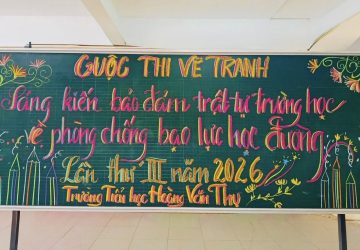 CUỘC THI VẼ TRANH
Sáng kiến bảo đảm trật tự trường học
về phòng chống bạo lực học đường
Lần thứ III năm 2026
Trường Tiểu học Hoàng Văn Thụ